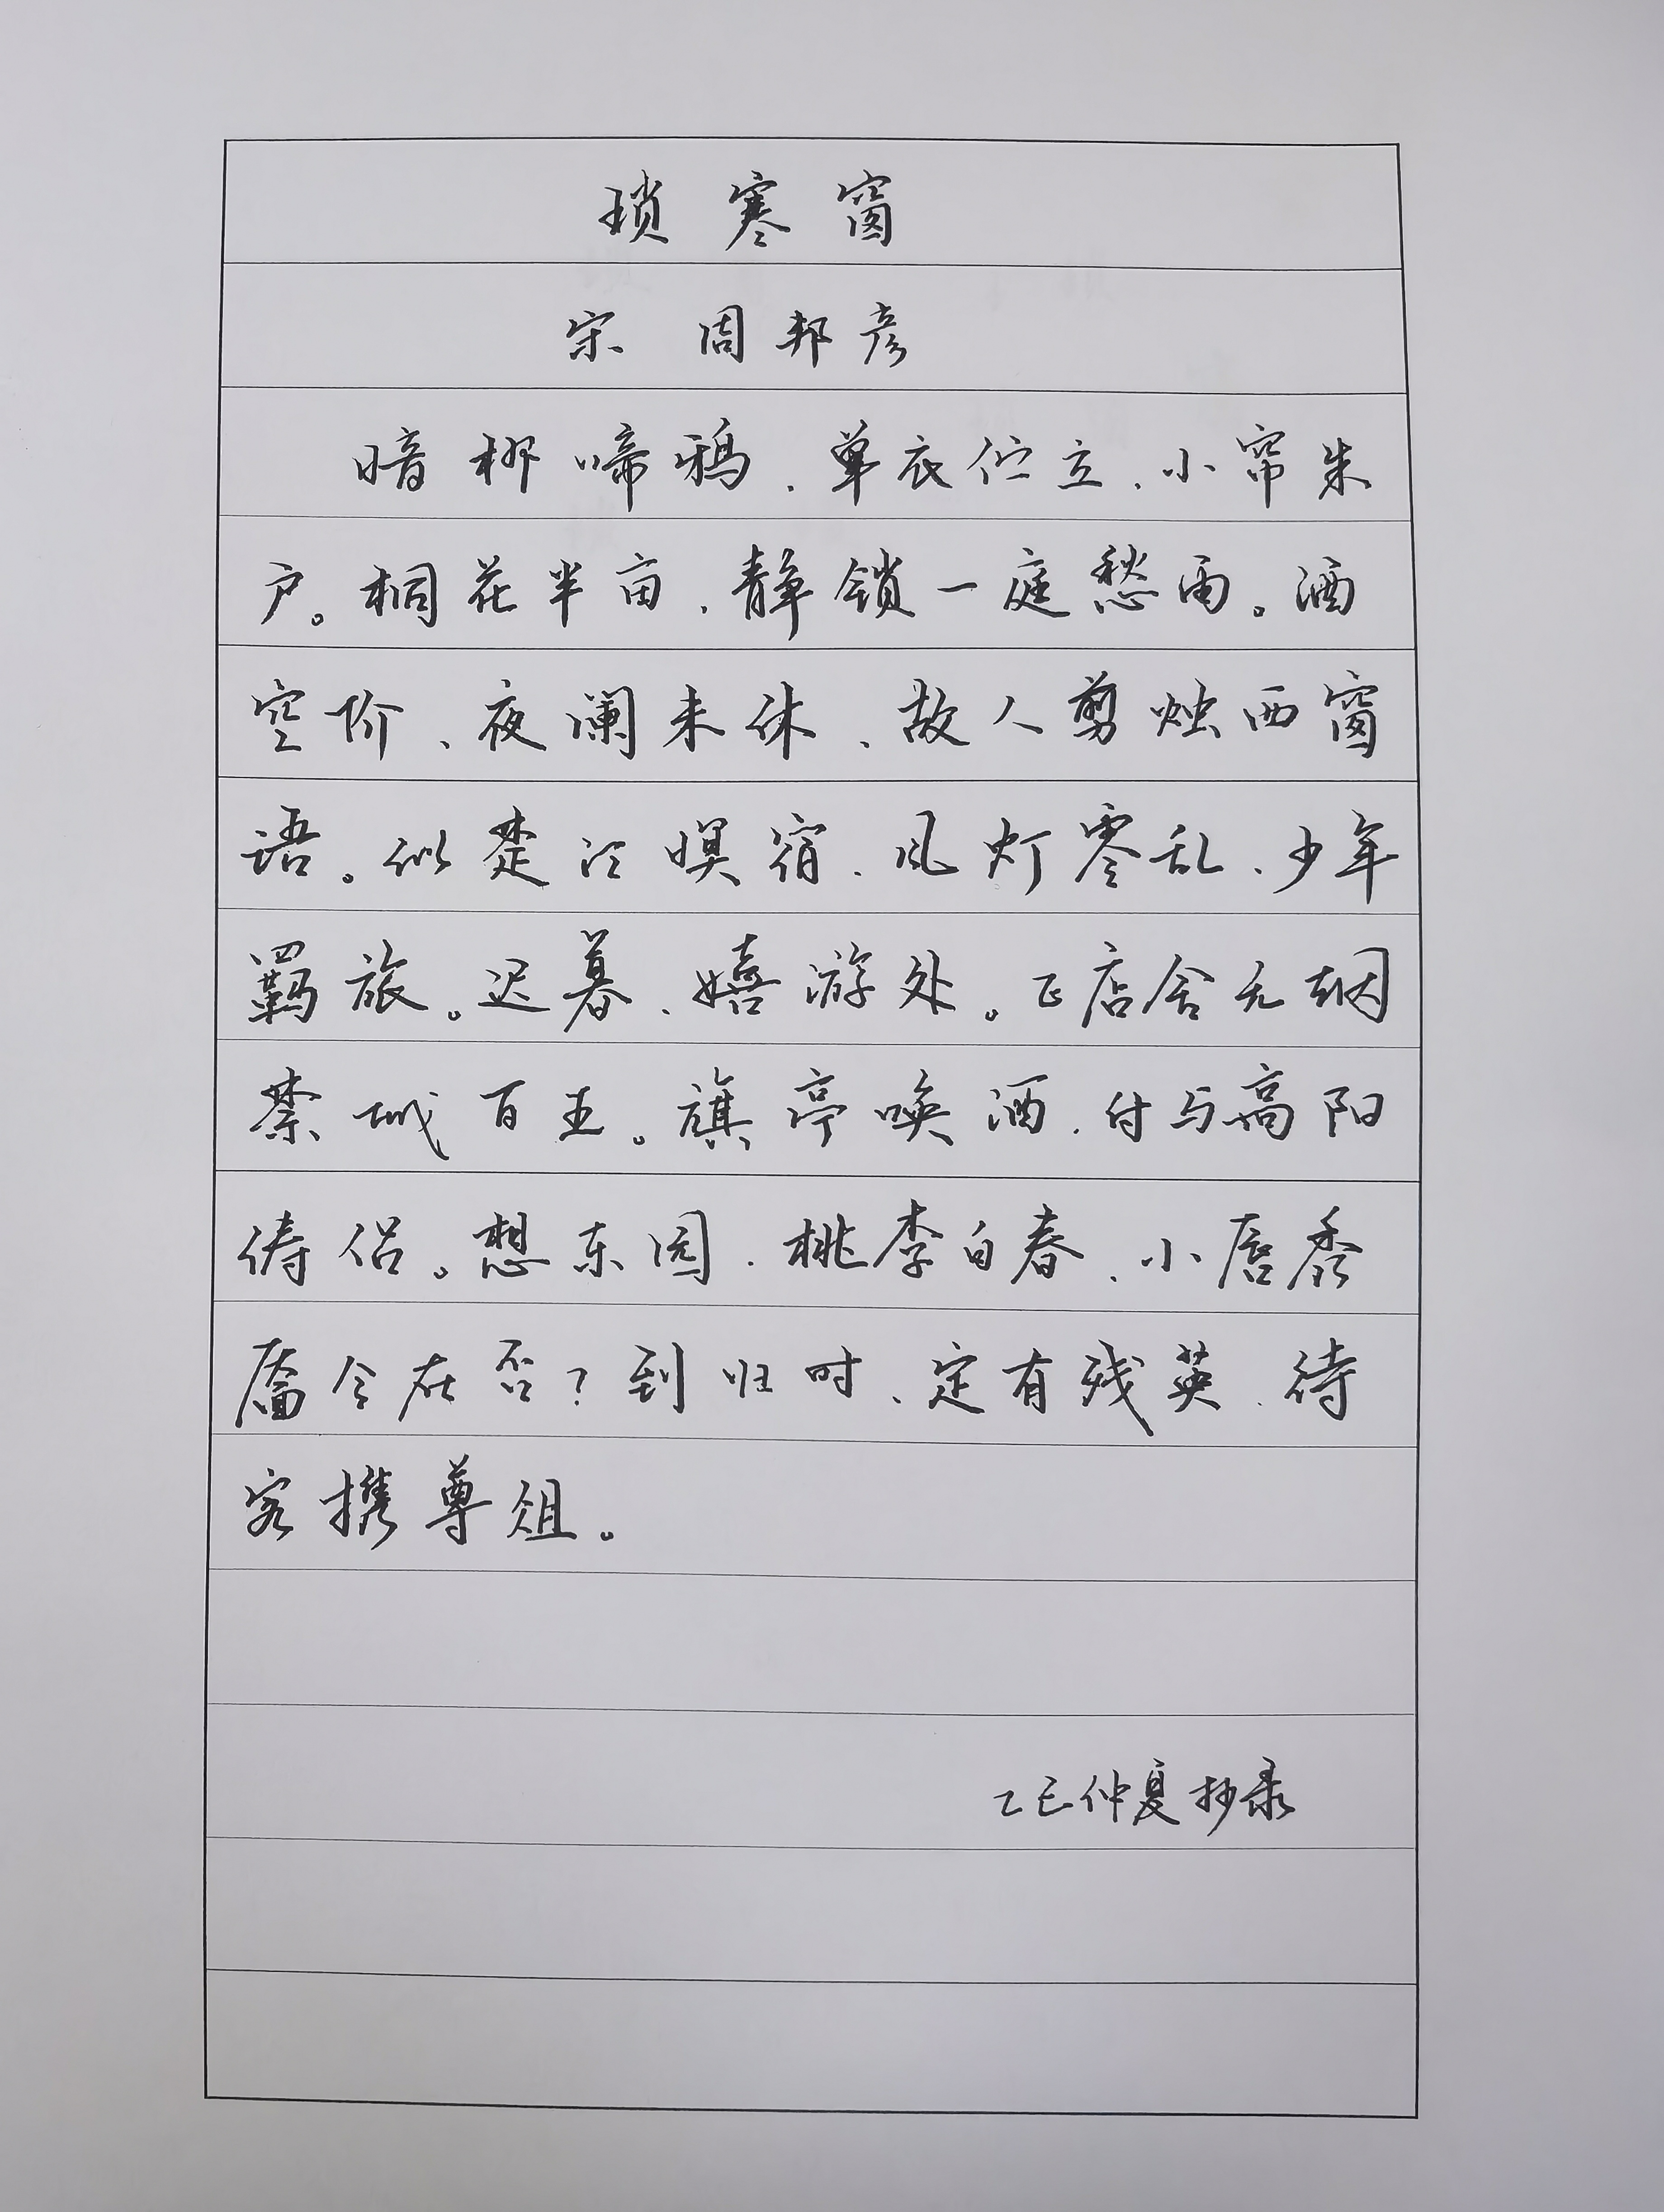 琐寒窗
宋 周邦彦
暗柳啼鸦、单衣伫立、小帘朱
户。桐花半亩、静锁一庭愁雨。洒
空阶、夜阑未休、故人剪烛西窗
语。似楚江暝宿、风灯零乱、少年
羁旅。迟暮、嬉游处。正店舍无烟
禁城百五。旗亭唤酒、付与高阳
俦侣。想东园、桃李自春、小唇秀
靥今在否?到归时、定有残英、待
客携尊俎。
乙巳仲夏抄录